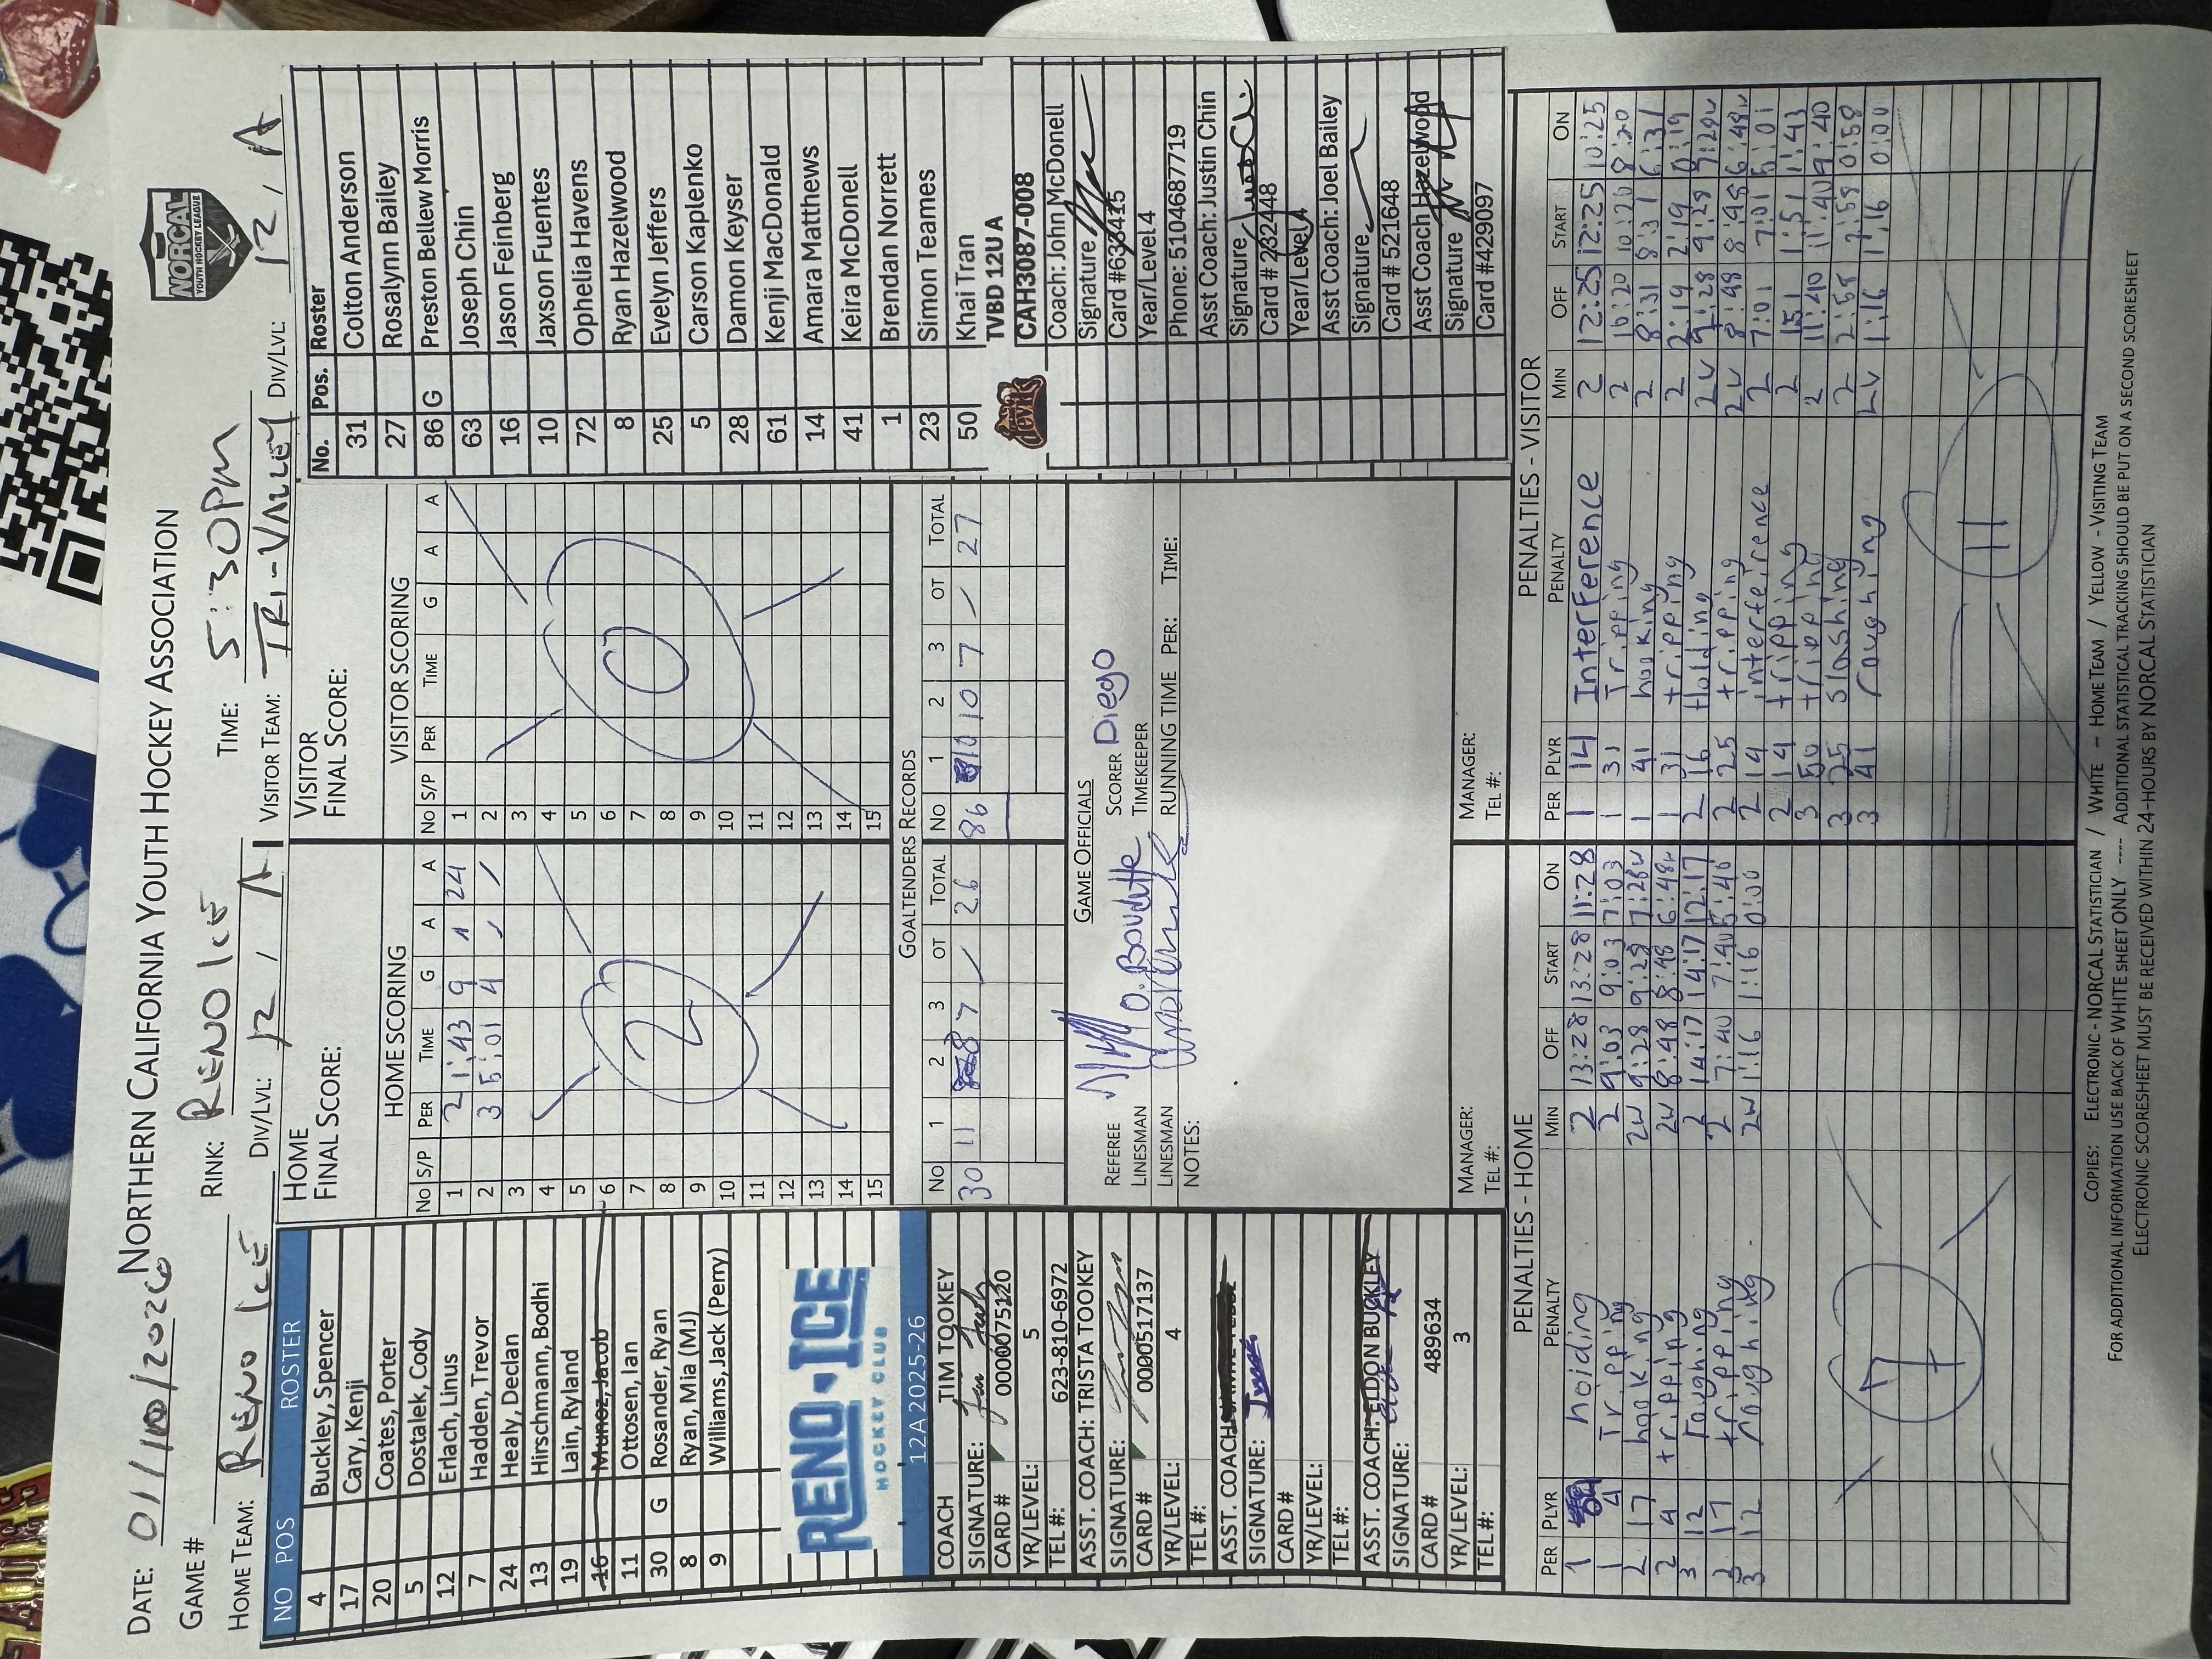 NORTHERN CALIFORNIA YOUTH HOCKEY ASSOCIATION
NORCAL
YOUTH HOCKEY LEAGUE
DATE: 01/10/2026 RINK: RENO ICE TIME: 5:30PM
GAME #
HOME TEAM: RENO ICE DIV/LVL: 12 / A VISITOR TEAM: TRI-VALLEY DIV/LVL: 12 / A
NO POS ROSTER
4 Buckley, Spencer
17 Cary, Kenji
20 Coates, Porter
5 Dostalek, Cody
12 Erlach, Linus
7 Hadden, Trevor
24 Healy, Declan
13 Hirschmann, Bodhi
19 Lain, Ryland
16 Munoz, Jacob
11 Ottosen, Ian
30 G Rosander, Ryan
8 Ryan, Mia (MJ)
9 Williams, Jack (Perry)
RENO•ICE
HOCKEY CLUB
12A 2025-26
COACH TIM TOOKEY
SIGNATURE:
CARD # 0000075120
YR/LEVEL: 5
TEL #: 623-810-6972
ASST. COACH: TRISTA TOOKEY
SIGNATURE:
CARD # 0000517137
YR/LEVEL: 4
TEL #:
ASST. COACH:
SIGNATURE:
CARD #
YR/LEVEL:
TEL #:
ASST. COACH: ELDON BUCKLEY
SIGNATURE:
CARD # 489634
YR/LEVEL: 3
TEL #:
HOME
FINAL SCORE:
HOME SCORING
NO S/P PER TIME G A A
1 2 1:43 9 1 24
2 3 5:01 4 / /
3
4
5
6
7
8
9
10
11
12
13
14
15
2
VISITOR
FINAL SCORE:
VISITOR SCORING
NO S/P PER TIME G A A
1
2
3
4
5
6
7
8
9
10
11
12
13
14
15
0
GOALTENDERS RECORDS
NO 1 2 3 OT TOTAL NO 1 2 3 OT TOTAL
30 11 8 7 / 26 86 10 10 7 / 27
GAME OFFICIALS
REFEREE O. Boudette SCORER Diego
LINESMAN TIMEKEEPER
LINESMAN RUNNING TIME PER: TIME:
NOTES:
MANAGER:
TEL #:
MANAGER:
TEL #:
No. Pos. Roster
31 Colton Anderson
27 Rosalynn Bailey
86 G Preston Bellew Morris
63 Joseph Chin
16 Jason Feinberg
10 Jaxson Fuentes
72 Ophelia Havens
8 Ryan Hazelwood
25 Evelyn Jeffers
5 Carson Kaplenko
28 Damon Keyser
61 Kenji MacDonald
14 Amara Matthews
41 Keira McDonell
1 Brendan Norrett
23 Simon Teames
50 Khai Tran
TVBD 12U A
CAH3087-008
Coach: John McDonell
Signature
Card #633415
Year/Level 4
Phone: 5104687719
Asst Coach: Justin Chin
Signature
Card # 232448
Year/Level 4
Asst Coach: Joel Bailey
Signature
Card # 521648
Asst Coach Hazelwood
Signature
Card #429097
PENALTIES - HOME
PER PLYR PENALTY MIN OFF START ON
1 holding 2 13:28 13:28 11:28
1 4 Tripping 2 9:03 9:03 7:03
2 17 hooking 2w 9:28 9:28 7:28w
2 4 tripping 2w 8:48 8:48 6:48w
3 12 roughing 2 14:17 14:17 12:17
3 17 tripping 2 7:40 7:40 5:40
3 12 roughing 2w 1:16 1:16 0:00
7
PENALTIES - VISITOR
PER PLYR PENALTY MIN OFF START ON
1 14 Interference 2 12:25 12:25 10:25
1 31 Tripping 2 10:20 10:20 8:20
1 41 hooking 2 8:31 8:31 6:31
1 31 tripping 2 2:19 2:19 0:19
2 16 Holding 2w 9:28 9:28 7:28w
2 25 tripping 2w 8:48 8:48 6:48w
2 14 interference 2 7:01 7:01 5:01
2 14 tripping 2 1:51 1:51 1:43
3 50 tripping 2 11:40 11:40 9:40
3 25 slashing 2 2:58 2:58 0:58
3 41 roughing 2w 1:16 1:16 0:00
11
COPIES: ELECTRONIC - NORCAL STATISTICIAN / WHITE – HOME TEAM / YELLOW - VISITING TEAM
FOR ADDITIONAL INFORMATION USE BACK OF WHITE SHEET ONLY ---- ADDITIONAL STATISTICAL TRACKING SHOULD BE PUT ON A SECOND SCORESHEET
ELECTRONIC SCORESHEET MUST BE RECEIVED WITHIN 24-HOURS BY NORCAL STATISTICIAN